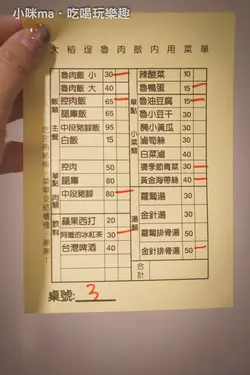 小咪ma・吃喝玩樂趣
大稻埕魯肉飯內用菜單
飯類 主食
魯肉飯 小 30
魯肉飯 大 40
控肉飯 65
腿庫飯 65
中段豬腳飯 95
白飯 15
單點 肉類
控肉 50
腿庫 80
中段豬腳 80
飲料
蘋果西打 20
阿嬤的冰紅茶 30
台灣啤酒 40
單點 小菜類
辣酸菜 10
魯鴨蛋 15
魯油豆腐 15
魯小豆干 30
醃小黃瓜 30
滷筍絲 30
白菜滷 40
燙季節青菜 30
黃金海帶絲 40
湯類
蘿蔔湯 30
金針湯 30
蘿蔔排骨湯 50
金針排骨湯 50
合計
桌號: 3